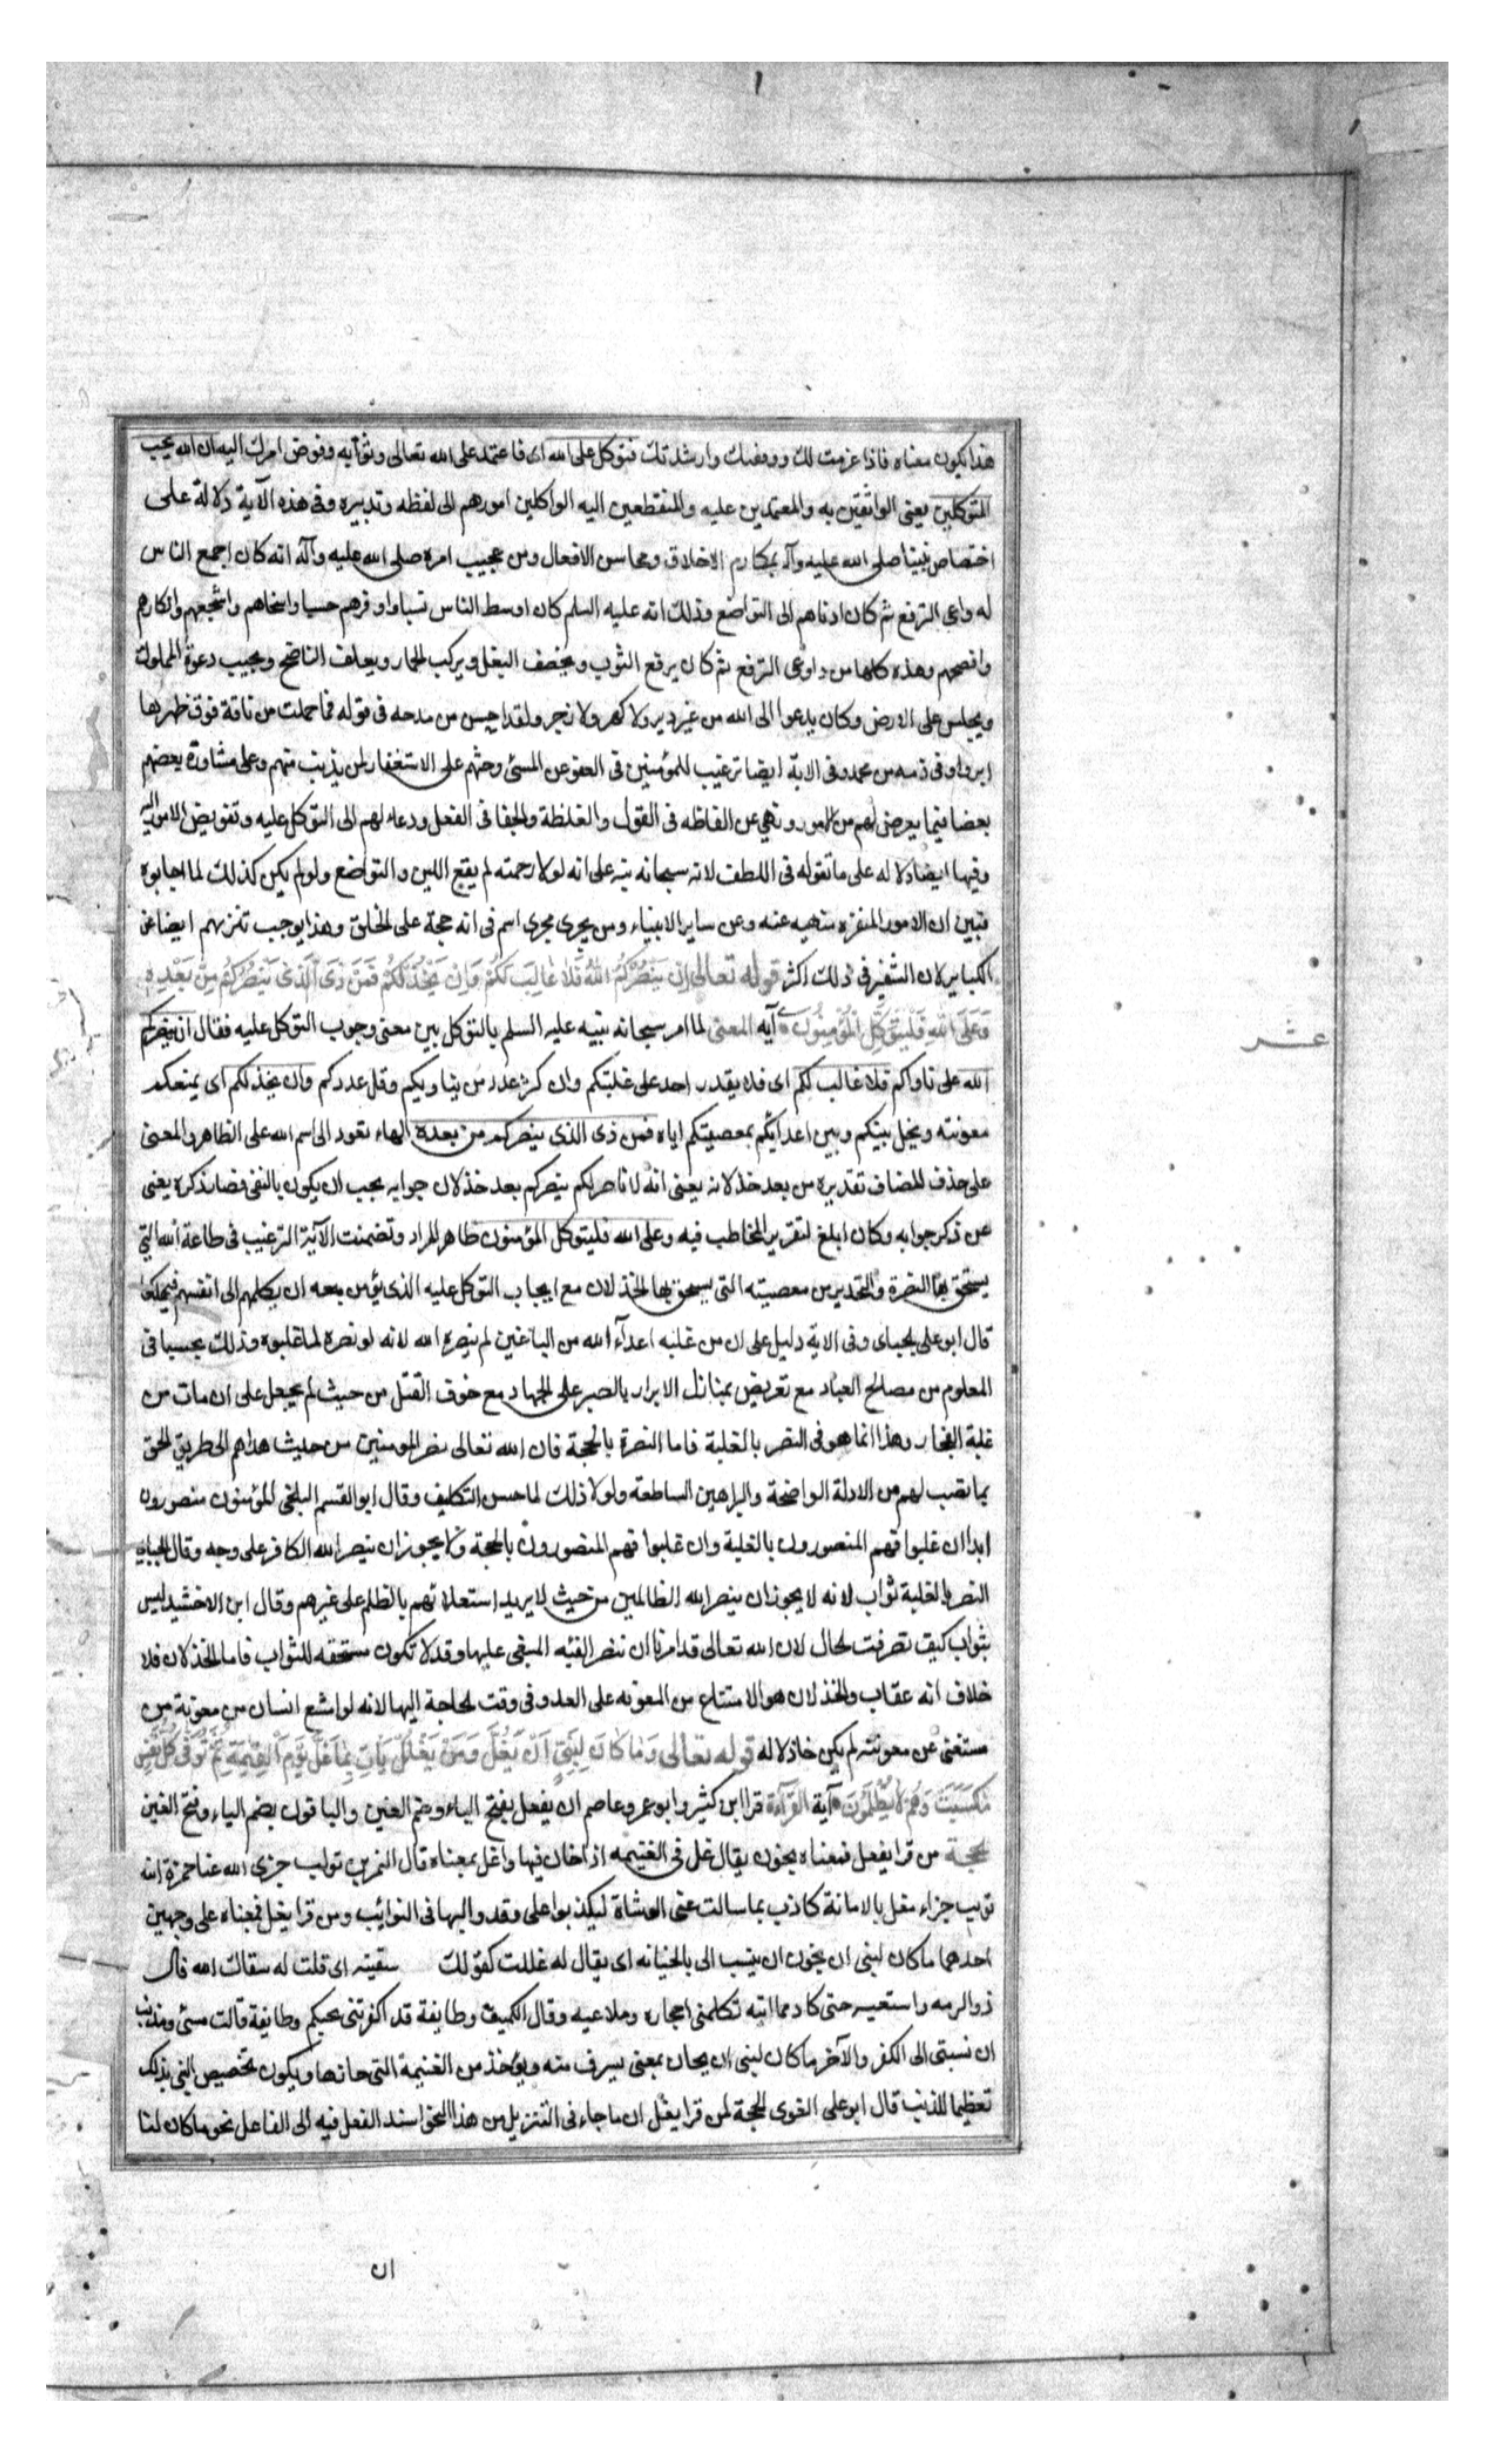 هذا يكون معناه فاذا عزمت لك ووفقتك وارشدتك فتوكل على الله اى فاعتمد على الله تعالى وثق به وفوض امرك اليه ان الله يحب
المتوكلين يعنى الواثقين به والمعتمدين عليه والمنقطعين اليه الواكلين امورهم الى لفظه وتدبيره وفى هذه الآية دلالة على
اختصاص نبينا صلى الله عليه وآله بمكارم الاخلاق ومحاسن الافعال ومن عجيب امره صلى الله عليه وآله انه كان اجمع الناس
له واعى الترفع ثم كان ادناهم الى التواضع وذلك انه عليه السلم كان اوسط الناس نسبا واوفرهم حسبا واسخاهم واشجعهم وازكاهم
وافصحهم وهذه كلها من داوعى الترفع ثم كان يرقع الثوب ويخصف النعل ويركب الحمار ويعلف الناضح ويجيب دعوة المملوك
ويجلس على الارض وكان يدعوا الى الله من غير ولا كهر ولا زجر ولقد احسن من مدحه فى قوله فما حملت من ناقة فوق ظهرها
ابر واوفى ذمه من محمد وفى الاية ايضا ترغيب للمؤمنين فى العفو عن المسئ وحثهم على الاستغفار لمن يذنب منهم وعلى مشاورة بعضهم
بعضا فيما يعرض لهم من الامور ونهى عن الفاظه فى القول والغلظة والجفا فى الفعل ودعاء لهم الى التوكل عليه وتفويض الامور اليه
وفيها ايضا دلاله على ما تقوله فى اللطف لانه سبحانه نبه على انه لولا رحمته لم يقع اللين والتواضع ولو لم يكن كذلك لما اجابوه
فبين ان الامور المنفره منهيه عنه وعن ساير الانبياء ومن يجرى مجرى اسم فى انه حجة على الخلق وهذا يوجب تنزيههم ايضا عن
الكباير لان التنفير فى ذلك اكثر قوله تعالى اِنْ يَنْصُرْكُمُ اللّٰهُ فَلَا غَالِبَ لَكُمْ وَاِنْ يَخْذُلْكُمْ فَمَنْ ذَى الَّذِى يَنْصُرُكُمْ مِنْ بَعْدِهِ
وَعَلَى اللهِ فَلْيَتَوَكَّلِ الْمُؤْمِنُونَ آية المعنى لما امر سبحانه نبيه عليه السلم بالتوكل بين معنى وجوب التوكل عليه فقال ان ينصركم
الله على ناواكم فلا غالب لكم اى فلا يقدر احد على غلبتكم وان كثر عدد من يناويكم وقل عددكم وان يخذلكم اى يمنعكم
معونته ويخل بينكم وبين اعدائكم بمعصيتكم اياه فمن ذى الذى ينصركم من بعده الهاء تعود الى اسم الله على الظاهر والمعنى
على حذف المضاف تقديره من بعد خذلانه يعنى انه لا ناصر لكم ينصركم بعد خذلان جوابه يجب ان يكون بالنفى فصار ذكره يغنى
عن ذكر جوابه وكان ابلغ لتقرير المخاطب فيه وعلى الله فليتوكل المؤمنون ظاهر المراد وتضمنت الآية الترغيب فى طاعة الله التى
يستحق بها النصرة والتحذير من معصيته التى يستحق بها الخذلان مع ايجاب التوكل عليه الذى يؤمن معه ان يكلهم الى انفسهم فيهلكوا
قال ابو على الجباى وفى الاية دليل على ان من غلبه اعدآء الله من الباغين لم ينصره الله لانه لو نصره لما غلبوه وذلك بحسب ما فى
المعلوم من مصالح العباد مع تعريض بمنازل الابرار بالصبر على الجهاد مع خوف القتل من حيث لم يجعل على ان مات من
غلبة الفجار وهذا انما هو فى النصر بالغلبة فاما النصرة بالحجة فان الله تعالى نصر المومنين من حيث هداهم الى طريق الحق
بما نصب لهم من الادلة الواضحة والبراهين الساطعة ولولا ذلك لما حسن التكليف وقال ابو القسم البلخى المؤمنون منصورون
ابدا ان غلبوا فهم المنصورون بالغلبة وان غلبوا فهم المنصورون بالحجة ولا يجوز ان ينصر الله الكافر على وجه وقال الجباى
النصر بالغلبة ثواب لانه لا يجوز ان ينصر الله الظالمين من حيث لا يريد استعلاتهم بالظلم على غيرهم وقال ابن الاخشيد ليس
بثواب كيف تصرفت الحال لان الله تعالى قد امرنا ان ننصر الفئه المبغى عليها وقد لا تكون مستحقه للثواب فاما الخذلان فلا
خلاف انه عقاب والخذلان هو الامتناع من المعونه على العدو فى وقت الحاجة اليها لانه لو امتنع انسان من معونة من
مستغنى عن معونته لم يكن خاذلا له قوله تعالى وَمَا كَانَ لِنَبِىٍّ اَنْ يَغُلَّ وَمَنْ يَغْلُلْ يَاتِ بِمَا غَلَّ يَوْمَ الْقِيٰمَةِ ثُمَّ تُوَفَّى كُلُّ نَفْسٍ
مَا كَسَبَتْ وَهُمْ لَا يُظْلَمُونَ آية القرآءة قرا ابن كثير وابو عمرو عاصم ان يفعل بفتح الياء وضم العين والباقون بضم الياء وفتح الغين
الحجة من قرا يفعل فمعناه يخون يقال غل فى الغنيمه اذا خان فيها واغل بمعناه قال النمر بن تولب جزى الله عنا حمزة ابنه
تولب جزاء مغل بالامانة كاذب بما سالت عنى الوشاة ليكذبوا على وقد واليها فى النوائب ومن قرا يغل فمعناه على وجهين
احدهما ما كان لنبى ان يخون ان ينسب الى بالخيانه اى يقال له غللت كقولك سقيته اى قلت له سقاك الله قال
ذوالرمه واستعيـه حتى كاد مما ابثه تكلمنى احجاره وملاعبه وقال الكميت وطايفة قد اكفرتنى بحبكم وطايفة قالت مسئ ومذنب
ان نسبتى الى الكفر والآخر ما كان لنبى ان يخان بمعنى يسرف منه ويؤخذ من الغنيمة التى حازها ويكون تخصيص النبى بذلك
تعظيما للذنب قال ابو على الفوى الحجة لمن قرا يغل ان ما جاء فى التنزيل من هذا النحو اسند الفعل فيه الى الفاعل نحو ما كان لنا
ان
عشر